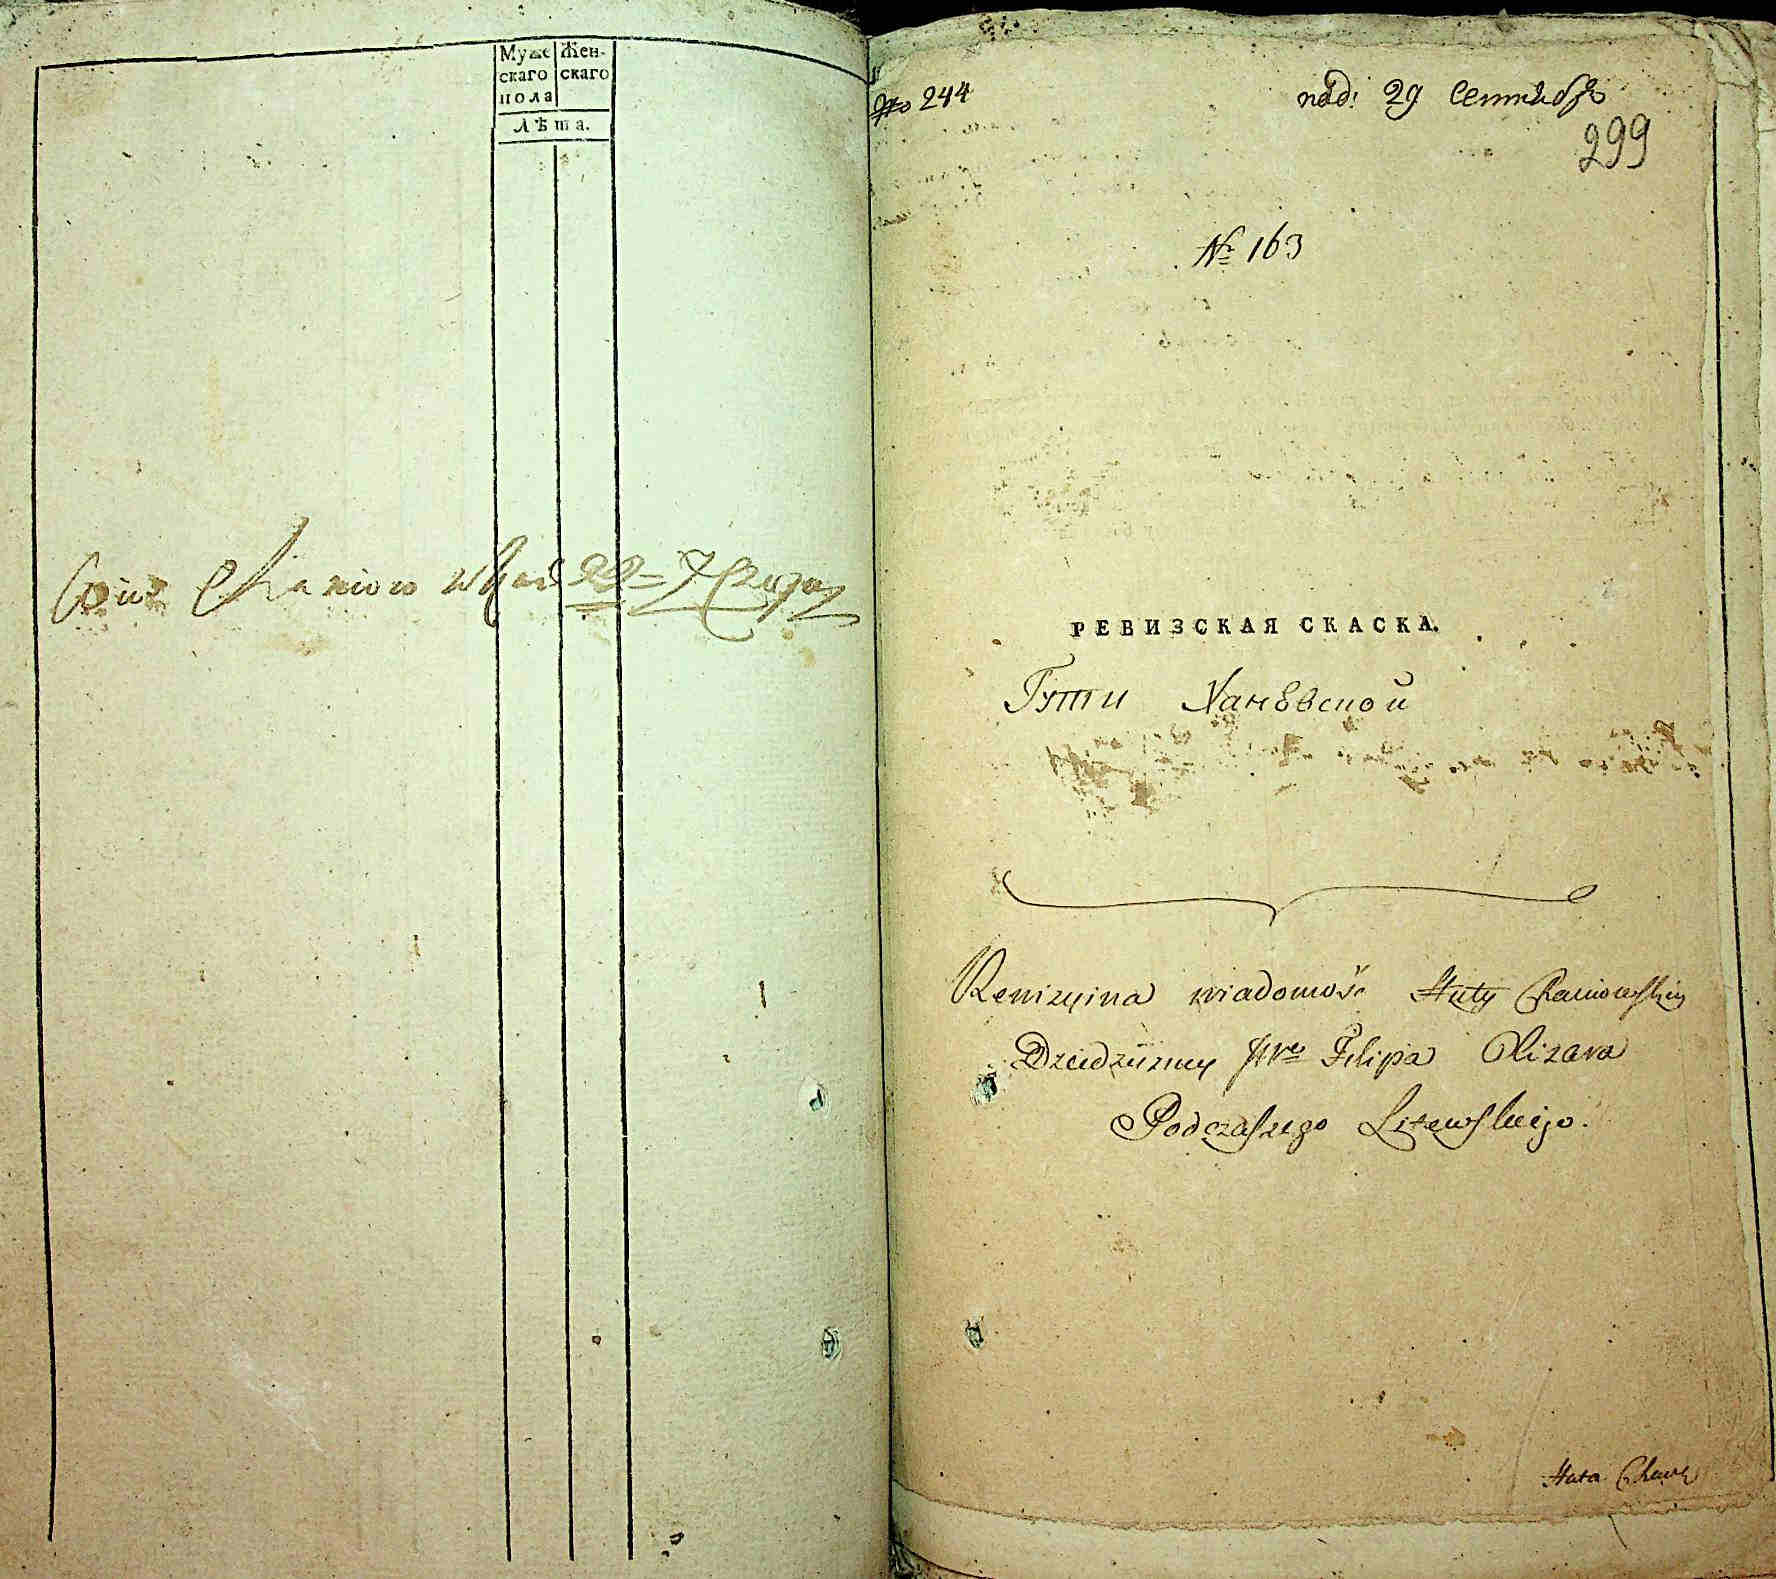 Муже Жен-
скаго скаго
пола
Лѣта.
244
под: 29 Сентяб
299
№ 163
РЕВИЗСКАЯ СКАСКА.
Гути Ханѣвской
Rewizyina wiadomość Huty Chaniowskiey
Dziedziczney JWo Filipa Olizara
Podczaszego Litewskiego.
Huta Chaw